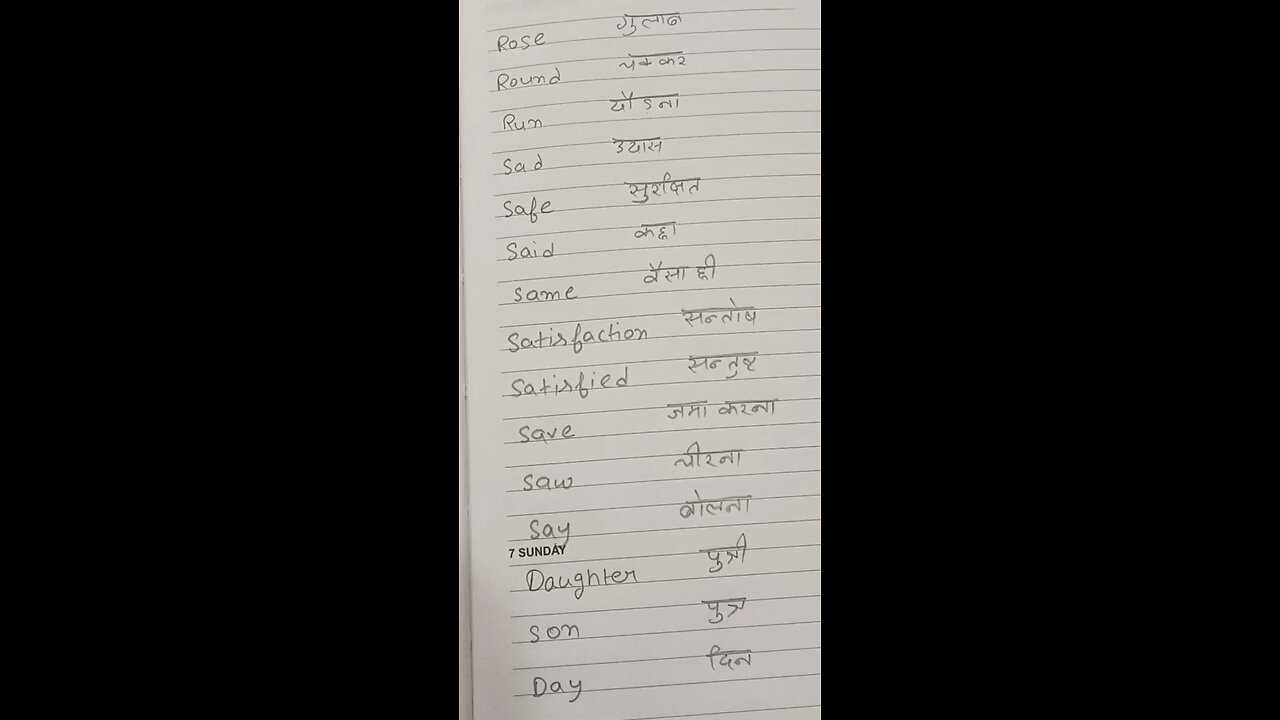 Rose गुलाब
Round चक्कर
Run दौड़ना
Sad उदास
Safe सुरक्षित
Said कहा
Same वैसा ही
Satisfaction सन्तोष
Satisfied सन्तुष्ट
Save जमा करना
Saw चीरना
Say बोलना
7 SUNDAY
Daughter पुत्री
Son पुत्र
Day दिन